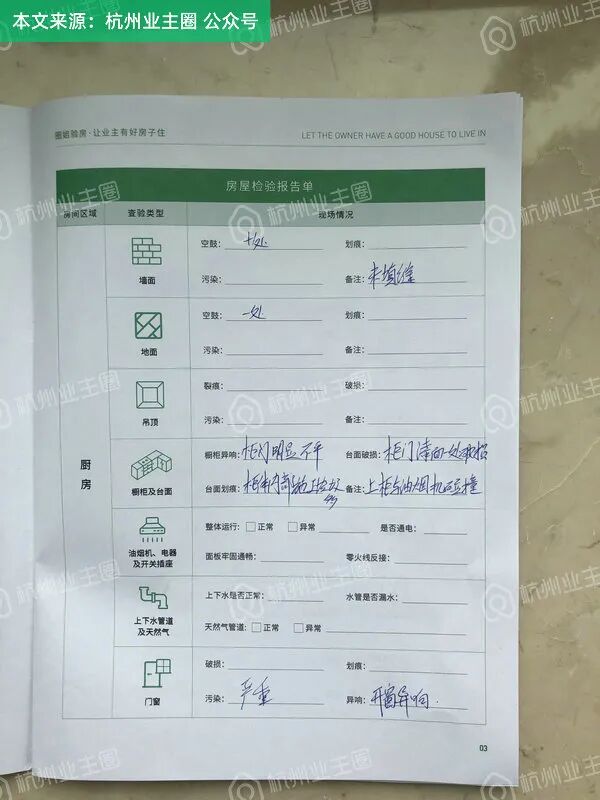 本文来源：杭州业主圈 公众号
圈姐验房·让业主有好房子住 LET THE OWNER HAVE A GOOD HOUSE TO LIVE IN
房屋检验报告单
房间区域 查验类型 现场情况
厨房
墙面
空鼓： 十处 划痕：
污染： 备注： 未填缝
地面
空鼓： 一处 划痕：
污染： 备注：
吊顶
裂痕： 破损：
污染： 备注：
橱柜及台面
橱柜异响： 柜门明显不平 台面破损： 柜门漆面一处破损
台面划痕： 柜体内 备注： 上柜与油烟机碰撞
油烟机、电器及开关插座
整体运行： 正常 异常 是否通电：
面板牢固通畅： 零火线反接：
上下水管道及天然气
上下水是否正常： 水管是否漏水：
天然气管道： 正常 异常
门窗
破损： 划痕：
污染： 严重 异响： 开窗异响.
03
杭州业主圈